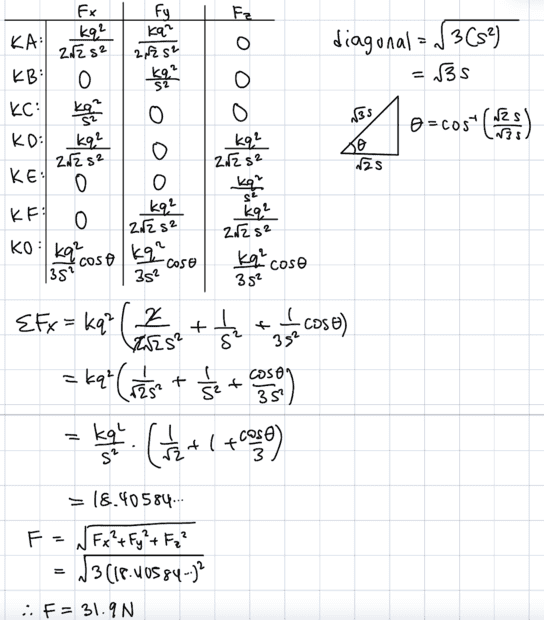 Fx Fy Fz
KA: kq²/2√2 s² kq²/2√2 s² 0
KB: 0 kq²/s² 0
KC: kq²/s² 0 0
KD: kq²/2√2 s² 0 kq²/2√2 s²
KE: 0 0 kq²/s²
KF: 0 kq²/2√2 s² kq²/2√2 s²
KO: kq²/3s² cosθ kq²/3s² cosθ kq²/3s² cosθ
diagonal = √3(s²)
= √3 s
√3s
θ
√2 s
θ = cos⁻¹(√2 s/√3 s)
ΣFx = kq²(2/2√2 s² + 1/s² + 1/3s² cosθ)
= kq²(1/√2s² + 1/s² + cosθ/3s²)
= kq²/s² · (1/√2 + 1 + cosθ/3)
= 18.40584...
F = √Fx²+Fy²+Fz²
= √3(18.40584...)²
∴ F = 31.9N